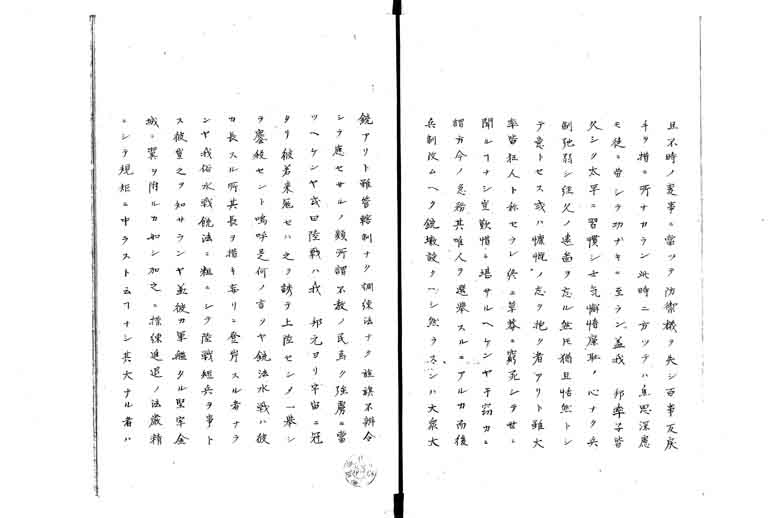 且不時ノ変事ニ當ツテ防禦機ヲ失シ百事瓦戻
手ヲ措ニ所ナカラン此時ニ方ツテハ焦思深慮
モ徒ニ労シテ功ナキニ至ラン蓋我 邦率子皆
久シク太平ニ習慣シ士気懈惰廉恥ノ心ナク兵
制弛弱シ経久ノ遠畫ヲ忘ル然氏猶且恬然トシ
テ意トセス或ハ慷慨ノ志ヲ抱ク者アリト雖大
率皆狂人ト称セラレ終ニ草莽ニ窮死シテ世ニ
聞ルヿナシ豈歎惜ニ堪サルヘケンヤ予茲カニ
謂方今ノ急務其唯人ヲ選挙スルニアルカ而後
兵制改ムヘク銃墩設クヘシ然ラスンハ大衆大
銃アリト雖皆轄制ナク調練法ナク旌旗不辨令
シテ應セサルノ類所謂不教ノ民馬ク強虜ニ當
ツヘケンヤ或曰陸戦ハ我 邦元ヨリ宇宙ニ冠
タリ彼若来冦セハ之ヲ誘テ上陸セシメ一挙シ
ヲ鏖殺セント嗚呼是何ノ言ソヤ銃法水戦ハ彼
カ長スル所其長ヲ措キ妄リニ登岸スル者ナラ
ンヤ我俗水戦銃法ニ粗ニシテ陸戦短兵ヲ事ト
ス彼豈之ヲ知サランヤ並彼カ軍艦タル堅牢金
城ニ翼ヲ附ルカ如シ加之ニ操練進退ノ法厳精
ニシテ規矩ニ中ラスト云フヿナシ其大ナル者ハ